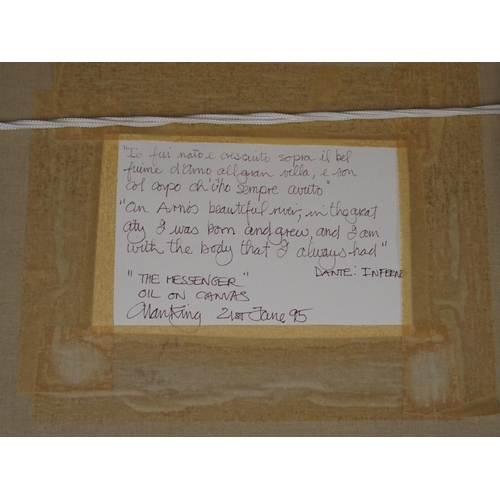 "Io fui nato e cresciuto sopra il bel
fiume d'Arno alla gran villa, e son
col corpo ch'i'ho sempre avuto"
"On Arno's beautiful river, in the great
city I was born and grew, and I am
with the body that I always had"
DANTE: INFERNO
"THE MESSENGER"
OIL ON CANVAS
Alan King 21st June 95